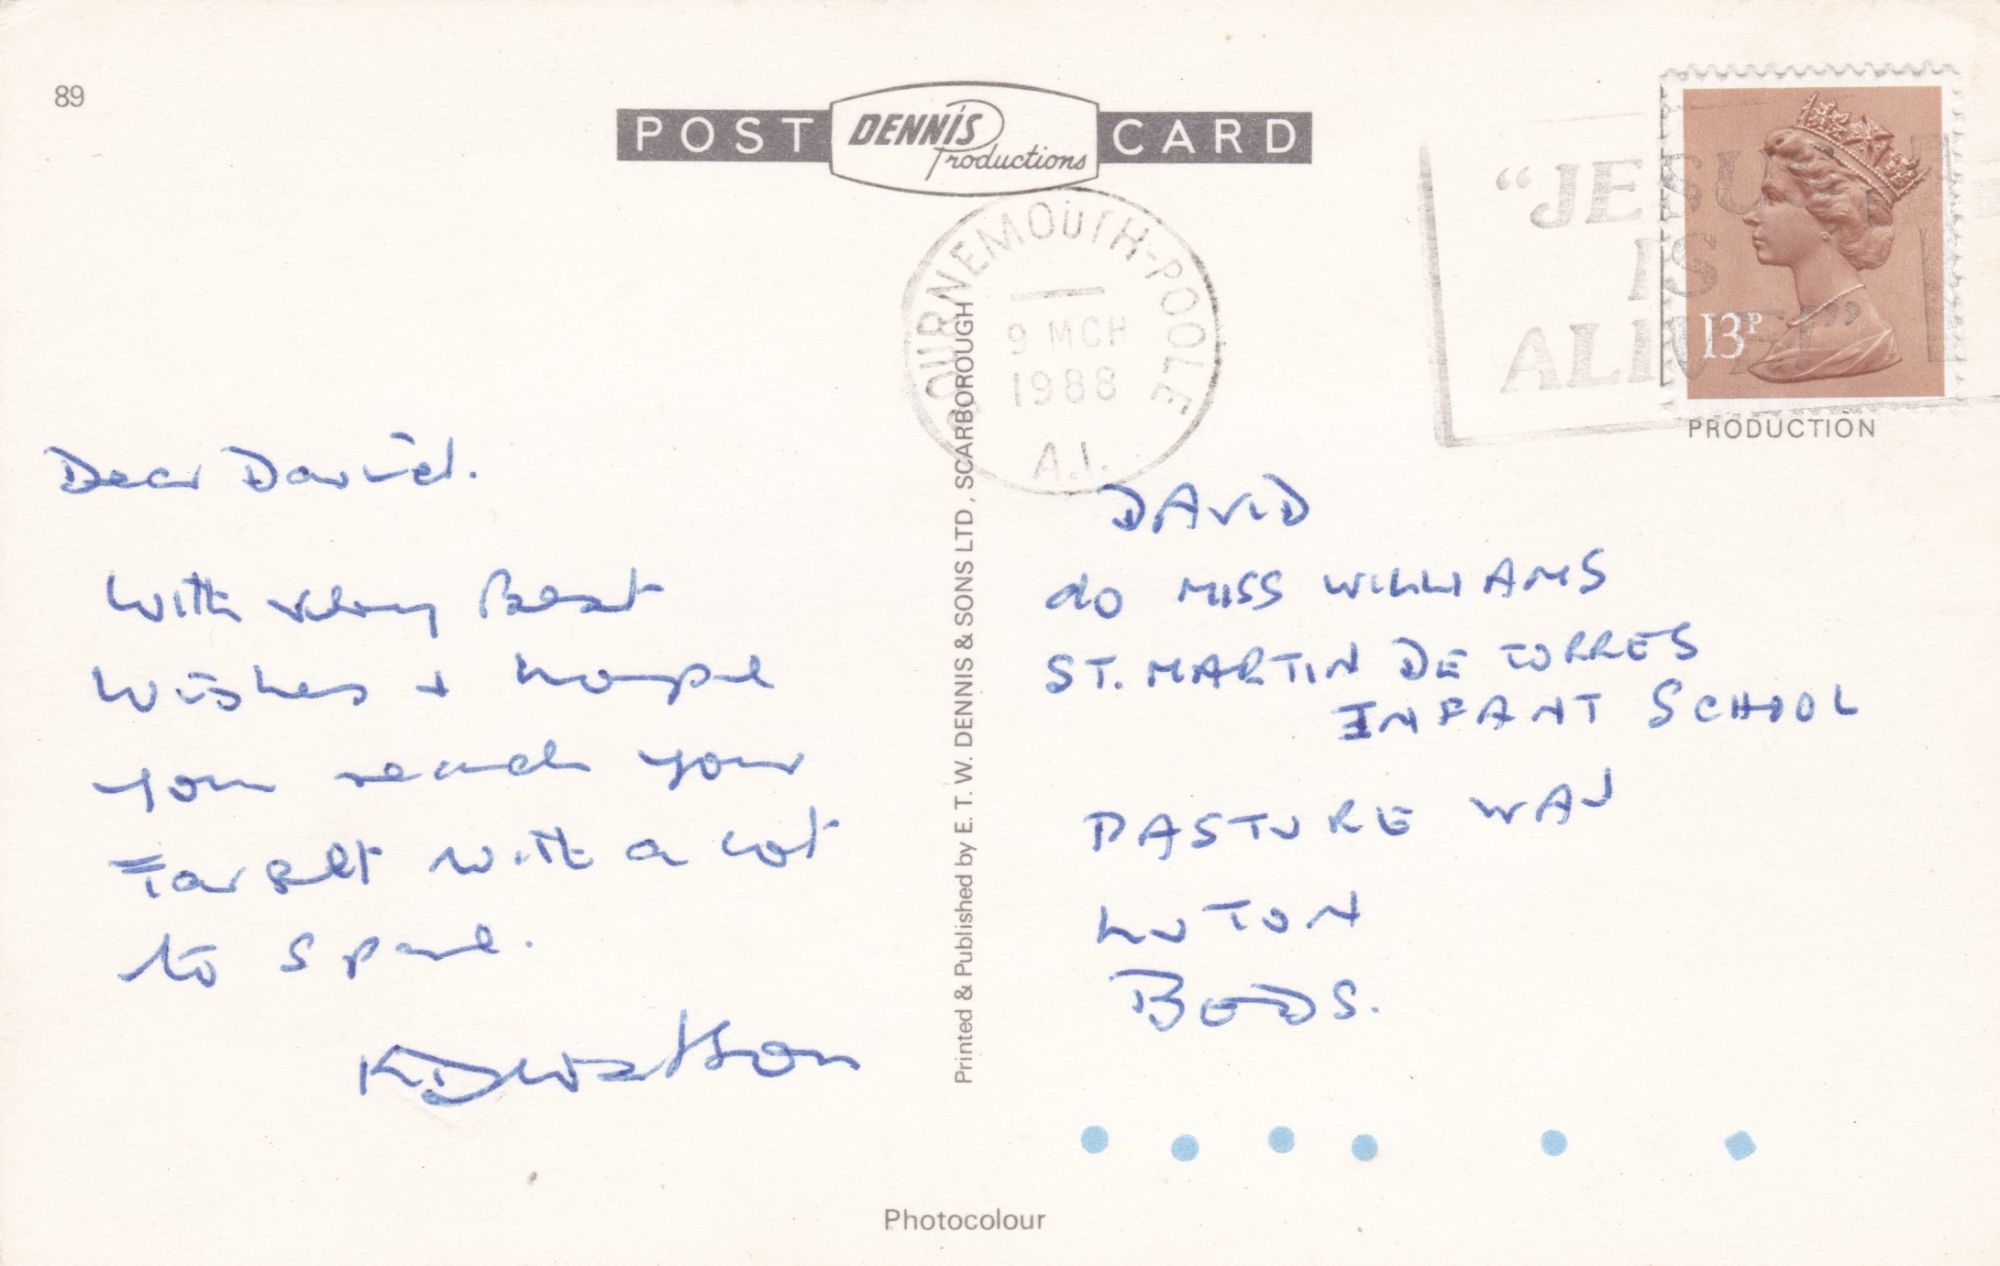 89
POST DENNIS Productions CARD
BOURNEMOUTH-POOLE
9 MCH
1988
A.I.
"JESUS
IS
ALIVE!"
13P
PRODUCTION
Dear David.
With very Best
Wishes + hope
you reach your
Target with a lot
to spare.
K D Watson
Printed & Published by E. T. W. DENNIS & SONS LTD, SCARBOROUGH
DAVID
c/o MISS WILLIAMS
ST. MARTIN DE TORRES
INFANT SCHOOL
PASTURE WAY
LUTON
BEDS.
Photocolour